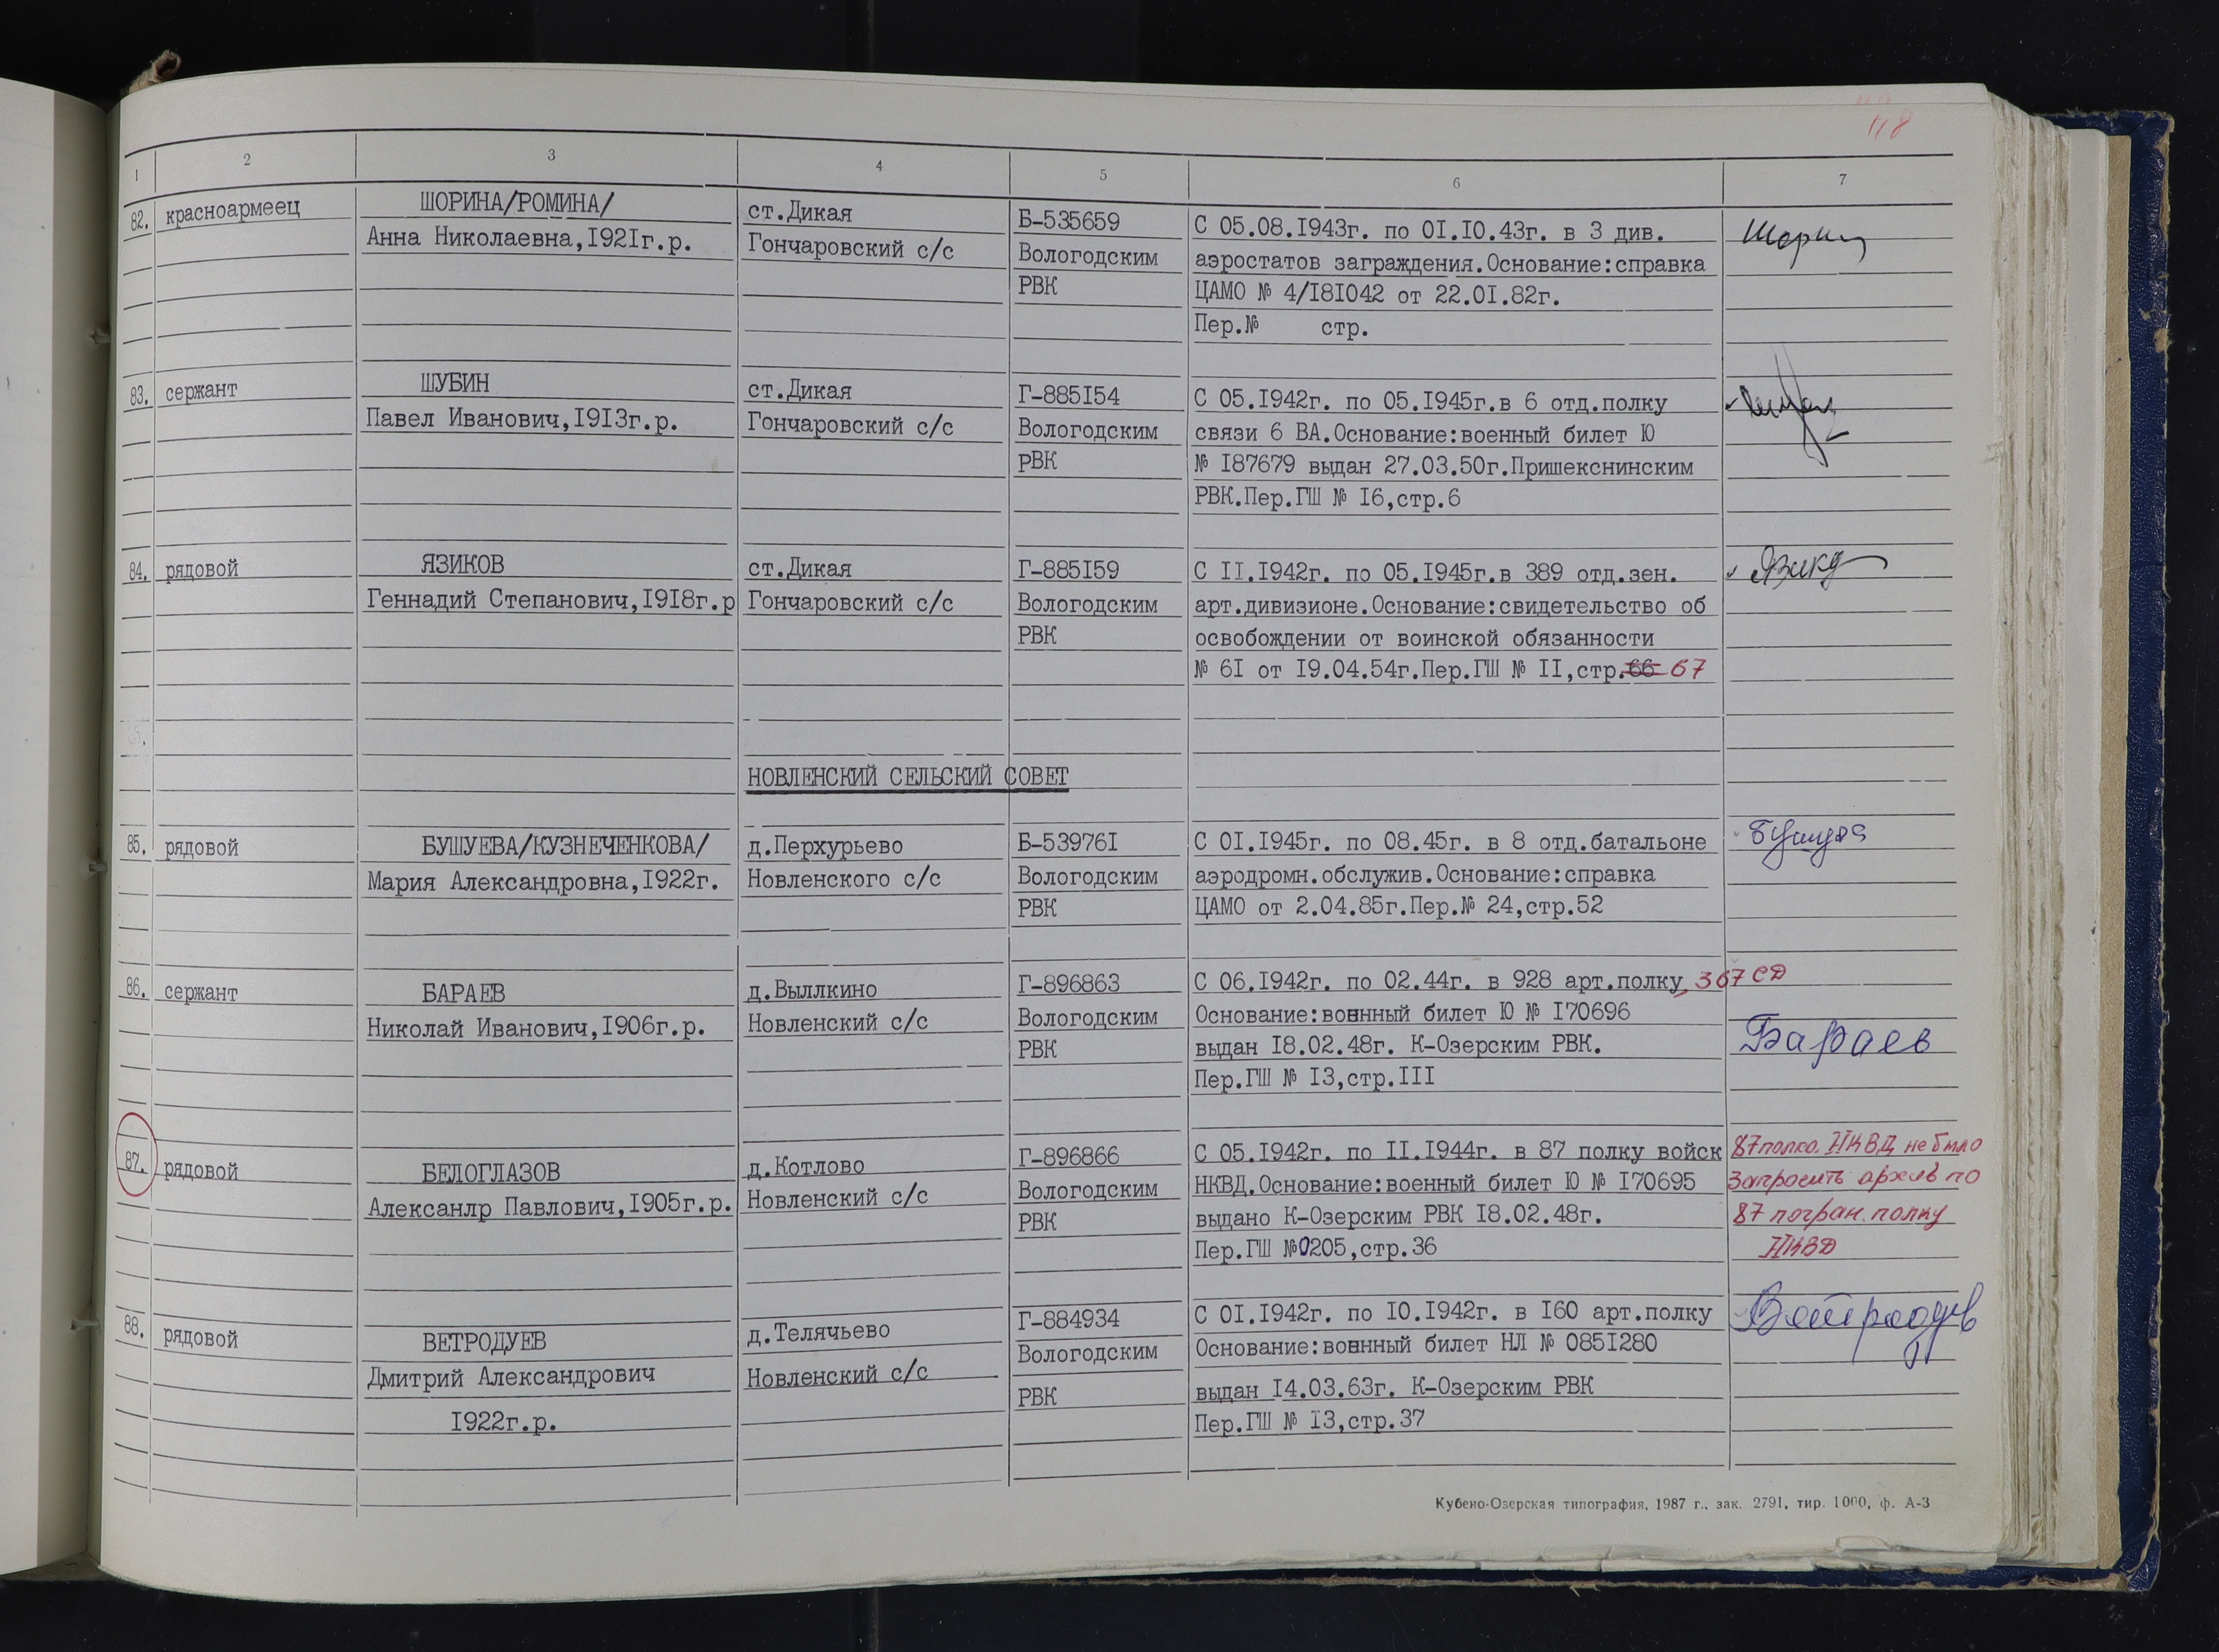 118
1 2 3 4 5 6 7
82. красноармеец
ШОРИНА/РОМИНА/
Анна Николаевна,I92Iг.р.
ст.Дикая
Гончаровский с/с
Б-535659
Вологодским
РВК
С 05.08.I943г. по 0I.I0.43г. в 3 див.
аэростатов заграждения.Основание:справка
ЦАМО № 4/I8I042 от 22.0I.82г.
Пер.№ стр.
83. сержант
ШУБИН
Павел Иванович,I9I3г.р.
ст.Дикая
Гончаровский с/с
Г-885I54
Вологодским
РВК
С 05.I942г. по 05.I945г.в 6 отд.полку
связи 6 ВА.Основание:военный билет Ю
№ I87679 выдан 27.03.50г.Пришекснинским
РВК.Пер.ГШ № I6,стр.6
84. рядовой
ЯЗИКОВ
Геннадий Степанович,I9I8г.р
ст.Дикая
Гончаровский с/с
Г-885I59
Вологодским
РВК
С II.I942г. по 05.I945г.в 389 отд.зен.
арт.дивизионе.Основание:свидетельство об
освобождении от воинской обязанности
№ 6I от I9.04.54г.Пер.ГШ № II,стр.66 67
НОВЛЕНСКИЙ СЕЛЬСКИЙ СОВЕТ
85. рядовой
БУШУЕВА/КУЗНЕЧЕНКОВА/
Мария Александровна,I922г.
д.Перхурьево
Новленского с/с
Б-53976I
Вологодским
РВК
С 0I.I945г. по 08.45г. в 8 отд.батальоне
аэродромн.обслужив.Основание:справка
ЦАМО от 2.04.85г.Пер.№ 24,стр.52
86. сержант
БАРАЕВ
Николай Иванович,I906г.р.
д.Выллкино
Новленский с/с
Г-896863
Вологодским
РВК
С 06.I942г. по 02.44г. в 928 арт.полку, 367 СД
Основание:воннный билет Ю № I70696
выдан I8.02.48г. К-Озерским РВК.
Пер.ГШ № I3,стр.III
Бараев
87. рядовой
БЕЛОГЛАЗОВ
Алексанлр Павлович,I905г.р.
д.Котлово
Новленский с/с
Г-896866
Вологодским
РВК
С 05.I942г. по II.I944г. в 87 полку войск
НКВД.Основание:военный билет Ю № I70695
выдано К-Озерским РВК I8.02.48г.
Пер.ГШ №0205,стр.36
87 полка НКВД не было
Запросить архив по
87 погран. полку
НКВД
88. рядовой
ВЕТРОДУЕВ
Дмитрий Александрович
I922г.р.
д.Телячьево
Новленский с/с
Г-884934
Вологодским
РВК
С 0I.I942г. по I0.I942г. в I60 арт.полку
Основание:воннный билет НЛ № 085I280
выдан I4.03.63г. К-Озерским РВК
Пер.ГШ № I3,стр.37
Кубено-Озерская типография, 1987 г., зак. 2791, тир. 1000, ф. А-3